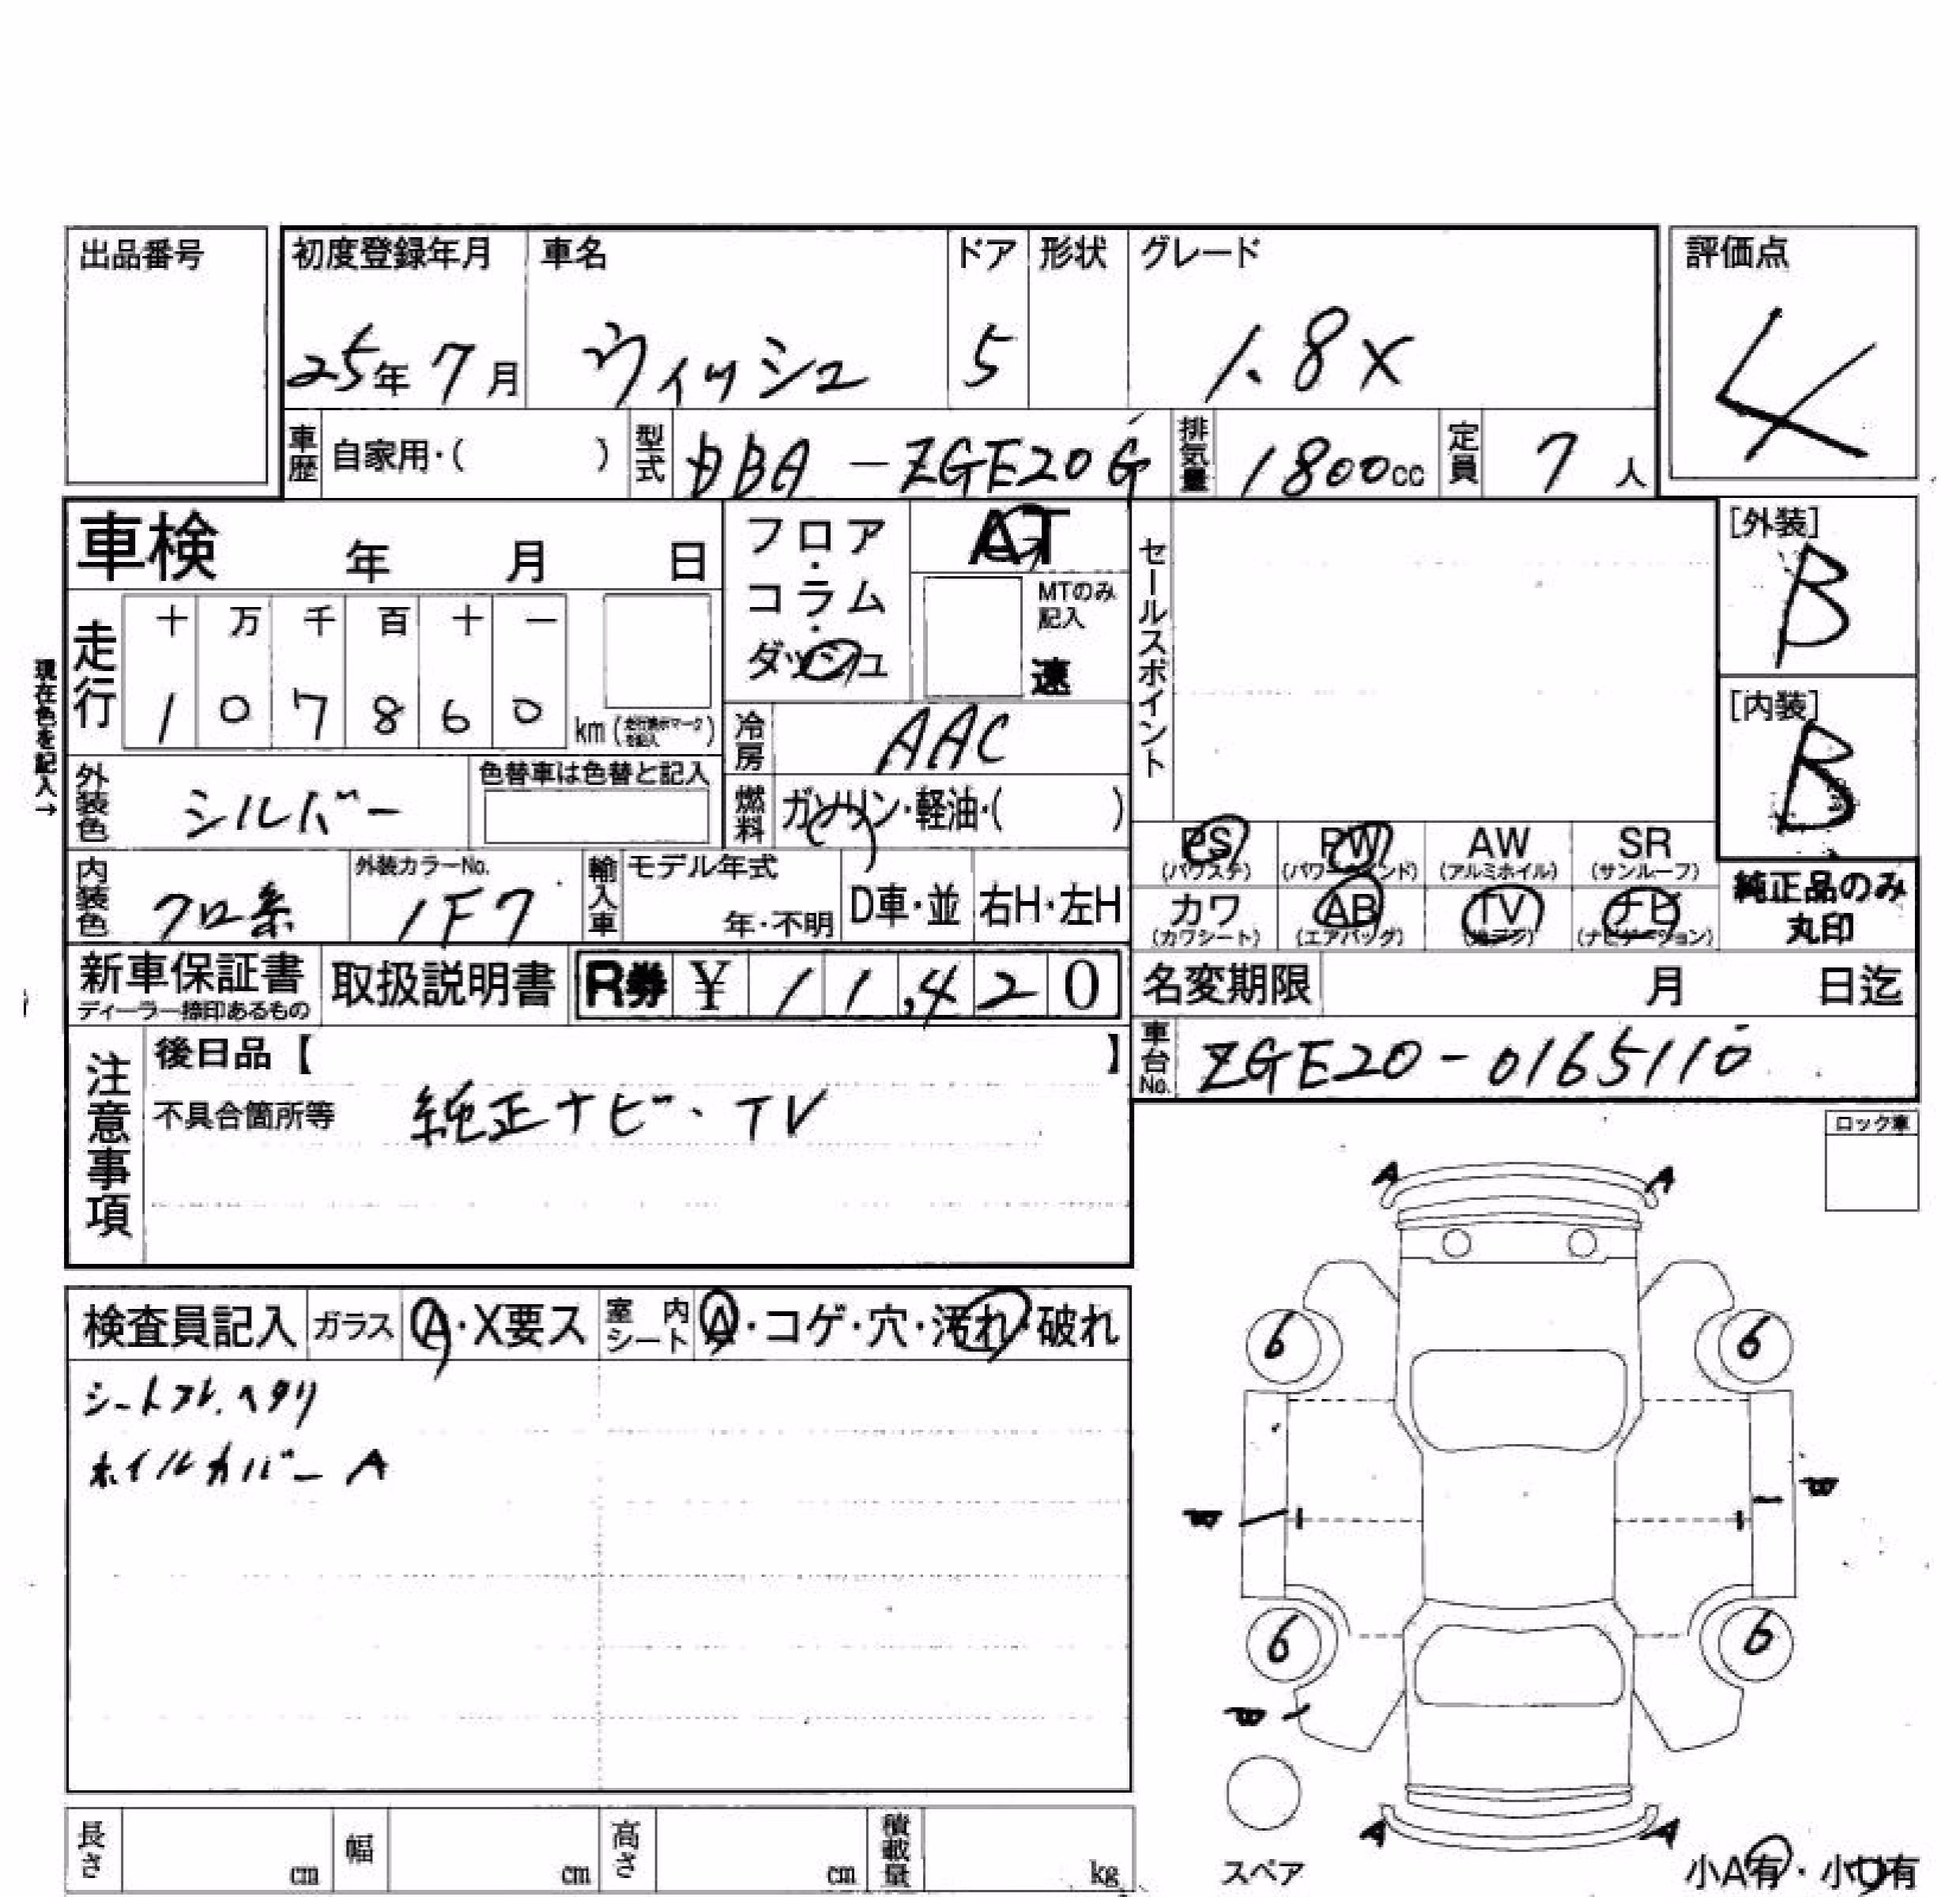 出品番号
初度登録年月 車名 ドア 形状 グレード 評価点
25年 7月 ウィッシュ 5 1.8X 4
車歴 自家用・( ) 型式 DBA-ZGE20G 排気量 1800cc 定員 7人
車検 年 月 日 フロア・コラム・ダッシュ AT セールスポイント [外装]
B
MTのみ記入 速
現在色を記入→
走行 十 万 千 百 十 一
1 0 7 8 6 0 km (走行表示マークを記入)
[内装]
B
冷房 AAC
外装色 シルバー 色替車は色替と記入 燃料 ガソリン・軽油・( )
PS (パワステ) PW (パワーウィンド) AW (アルミホイル) SR (サンルーフ)
内装色 クロ系 外装カラーNo. 1F7 輸入車 モデル年式 年・不明 D車・並 右H・左H
カワ (カワシート) AB (エアバッグ) TV ナビ (ナビゲーション) 純正品のみ丸印
新車保証書 ディーラー捺印あるもの 取扱説明書 R券 ¥ 11,420 名変期限 月 日迄
車台No. ZGE20-0165110
注意事項 後日品【 】
不具合箇所等 純正ナビ、TV
ロック車
検査員記入 ガラス A・X要ス 室内シート A・コゲ・穴・汚れ・破れ
シートスレ、ヘタリ
ホイルカバー A
A A
6 6
B B
6 6
B
A A
スペア
小A有・小U有
長さ cm 幅 cm 高さ cm 積載量 kg